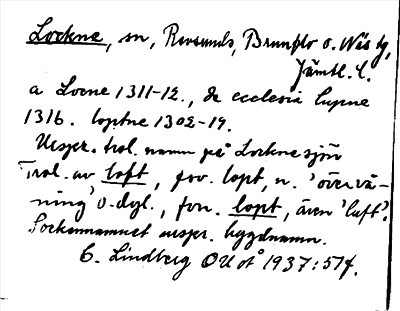 Lockne, sn, Revsunds, Brunflo o. Näs tg,
Jämtl. l.
a Locne 1311-12., de ecclesia lupne
1316. loptne 1302-19.
Urspr. trol. namn på Locknesjön
Trol. av loft, fsv. lopt, n. 'övervå-
ning' o. dyl., fvn. lopt, även 'luft'.
Sockennamnet urspr. bygdnamn.
C. Lindberg OUoÅ 1937: 51f.